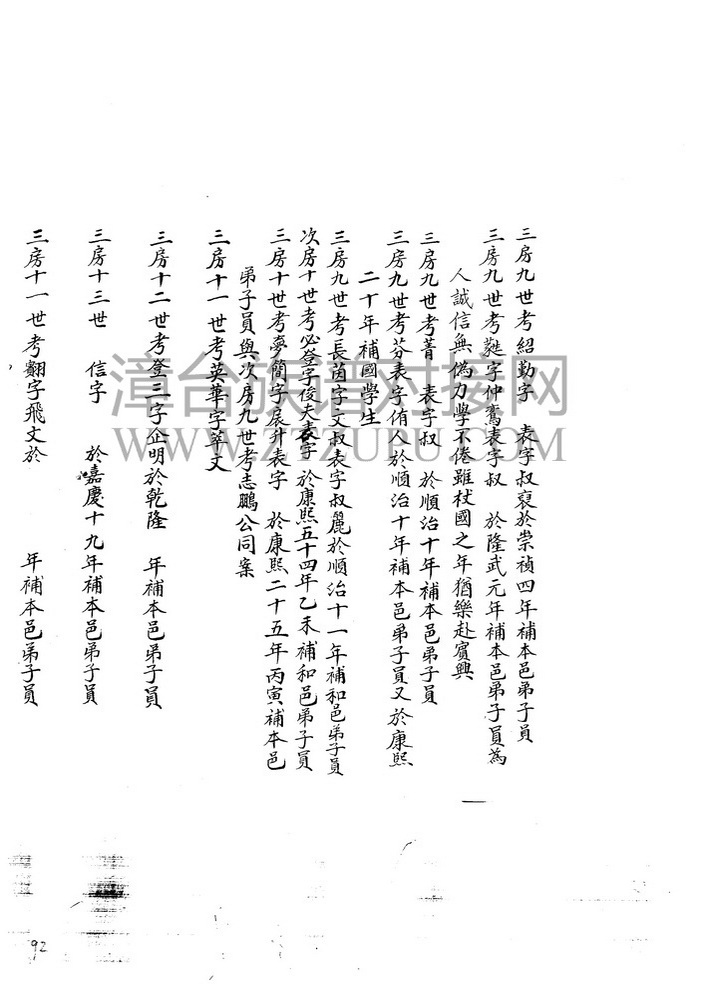 三房九世考紹勤字　表字叔裒於崇禎四年補本邑弟子員
三房九世考蕤字仲鸞表字叔　於隆武元年補本邑弟子員為
人誠信無偽力學不倦雖杖國之年猶樂赴賓興
三房九世考菁　表字叔　於順治十年補本邑弟子員
三房九世考芬表字侑人於順治十年補本邑弟子員又於康熙
二十年補國學生
三房九世考長茵字文叔表字叔麗於順治十一年補和邑弟子員
次房十世考必登字俊夫表字　於康熙五十四年乙未補和邑弟子員
三房十世考夢簡字展升表字　於康熙二十五年丙寅補本邑
弟子員與次房九世考志鵬公同案
三房十一世考英華字萃文
三房十二世考登三字企明於乾隆　年補本邑弟子員
三房十三世　信字　於嘉慶十九年補本邑弟子員
三房十一世考翻字飛文於　年補本邑弟子員
漳台族谱对接网
WWW.ZTZUPU.COM
92